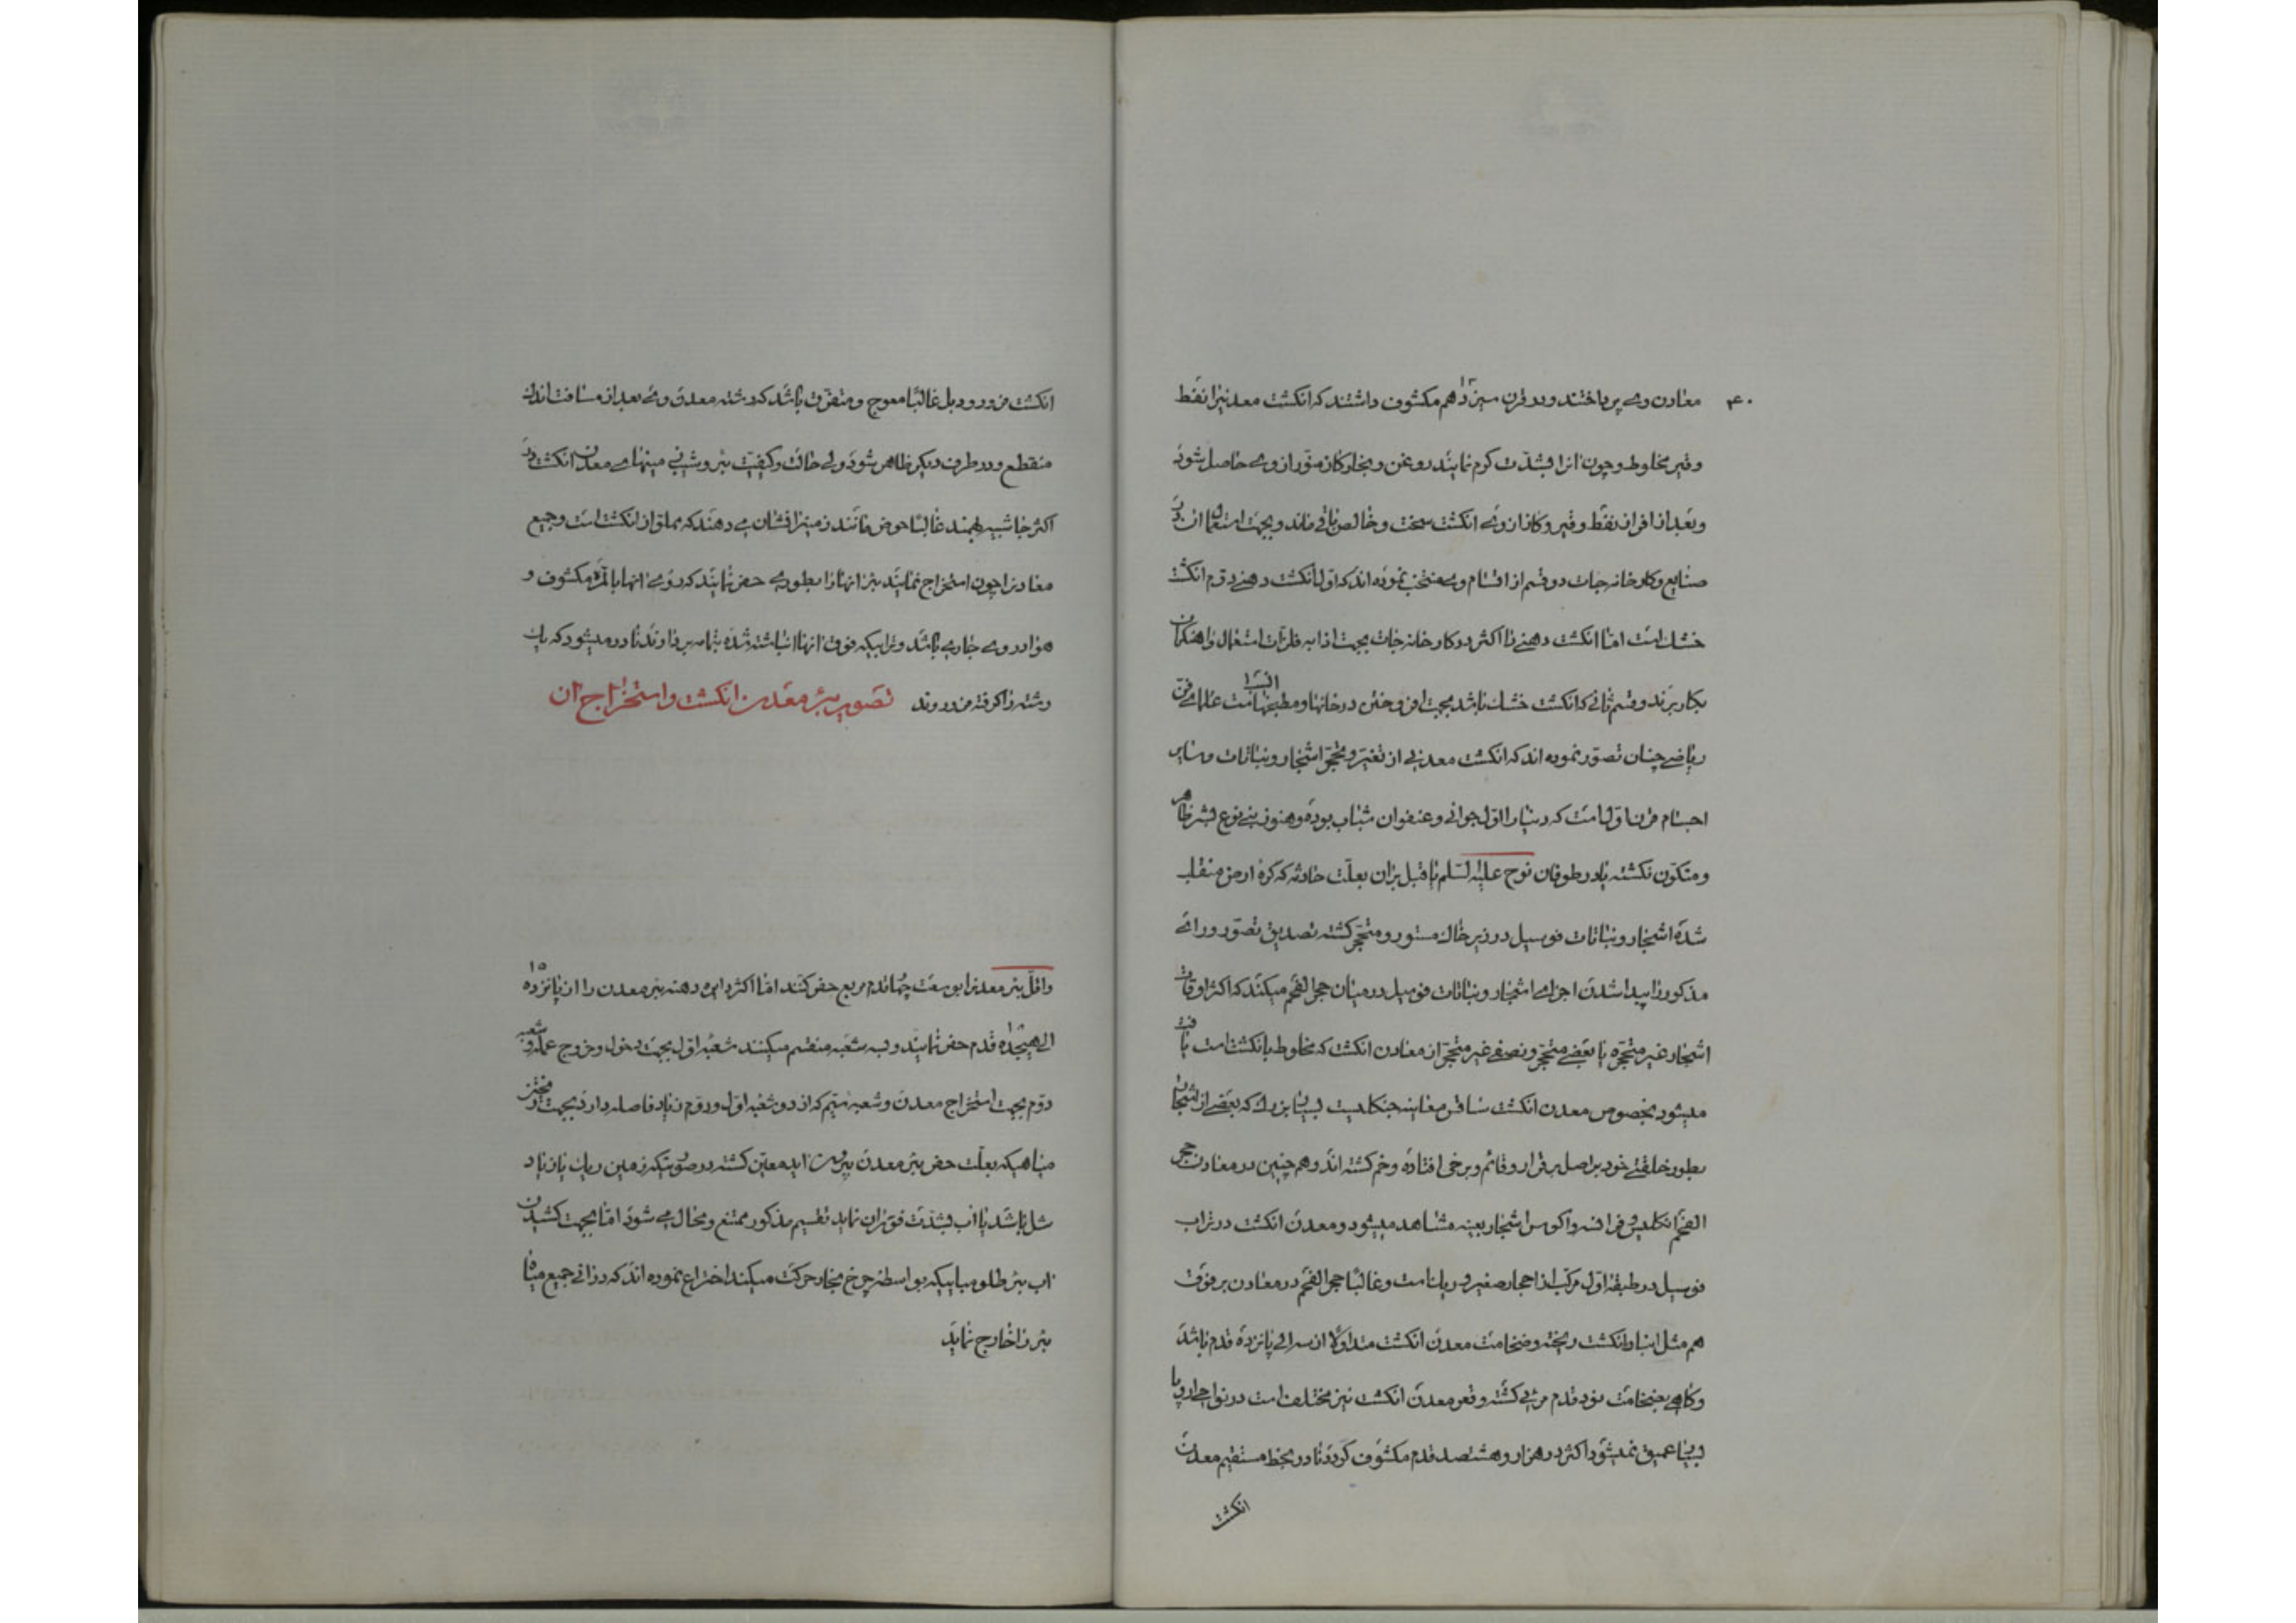 ۴۰
معادن وی پرداختند و در قرن سیزدهم مکشوف داشتند که انکشت معدنیرا نفط
وقیر مخلوط و چون انرا بشدّت کرم نمایند روغن و بخار و کاز منوّر از وی حاصل شود
و بعد از افراز نفط و قیر و کاز از وی انکشت سخت و خالص باقی ماند و بجهت استعمال ان در
صنایع و کارخانه جات دو قسم از اقسام وی منتخب نموده اند که اوّل انکشت دهنی دوّم انکشت
خشک است امّا انکشت دهنی را اکثر در کارخانه جات بجهت اذابه فلزّات استعمال و اهنکران
بکار برند و قسم ثانی که انکشت خشک باشد بجهت افروختن در خانها و مطبخها است علمای فنّ
ریاضی چنان تصوّر نموده اند که انکشت معدنی از تغیّر و تحجّر اشجار و نباتات و سایر
اجسام قرن اوّل است که دنیا را اوّل جوانی و عنفوان شباب بوده و هنوز بنی نوع بشر ظاهر
و متکوّن نکشته یا در طوفان نوح علیه السّلم یا قبل بران بعلّت حادثه که کره ارض منقلب
شده اشجار و نباتات فوسیل در زیر خاک مستور و متحجّر کشته تصدیق تصوّر و رای
مذکور را پیدا شدن اجزای اشجار و نباتات فوسیل در میان حجر الفحم میکند که اکثر اوقات
اشجار غیر متحجّره یا بعضی متحجّر و نصفی غیر متحجّر از معادن انکشت که مخلوط بانکشت است یافت
میشود بخصوص معدن انکشت جنکلیست بسیار بزرک که بعضی از اشجار ان
بطور خلقتی خود بر اصل برقرار و قائم و برخی افتاده و خم کشته اند و هم چنین در معادن حجر
الفحم انکلیس و فرانسه و اکوس اشجار بعینه مشاهده میشود و معدن انکشت در تراب
فوسیل در طبقه اوّل مرکّب از احجار صغیر و ریک است و غالبًا حجر الفحم در معادن بر فوق
هم مثل انبار انکشت ریخته و ضخامت معدن انکشت متداولًا از سه الی پانزده قدم باشد
و کاهی بضخامت نود قدم مرئی کشته و قعر معدن انکشت نیز مختلف است در نواحی اروپا
بسیار عمیق نمیشود اکثر در هزار و هشتصد قدم مکشوف کردد نادر بخط مستقیم معدن
انکشت
انکشت فرو رود بل غالبًا معوج و متفرّق باشد که رشته معدن وی بعد از مسافت اندک
منقطع و در طرف دیکر ظاهر شود ولی حالت و کیفیّت بئر و شیب زمینهای معدن انکشت در
اکثر جا شبیه بهمند غالبًا حوض مانند زمینرا نشان می دهند که مملوّ از انکشت است و جمیع
معادنرا چون استخراج نمایند بئر انها را بطوری حفر نمایند که روی انها بالمرّه مکشوف و
هوا در وی جاری باشد و ترابیکه فوق انها انباشته شده بتمامه بردارند نادر میشود که یک
رشته را کرفته فرو روند تصویر بئر معدن انکشت و استخراج ان
و اقلّ بئر معدنرا بوسعت چهار قدم مربع حفر کنند امّا اکثر دایره دهنه بئر معدن را از پانزده ۱۵
الی هیجده قدم حفر نمایند و بسه شعبه منقسم میکنند شعبه اوّل بجهت دخول و خروج عمله و شعبه
دوّم بجهت استخراج معدن و شعبه سیّم که از دو شعبه اوّل و دوّم زیاد فاصله دارد بجهت ریختن
میاهیکه بعلّت حفر بئر معدن بیرون اید معیّن کشته در صورتیکه زمین ریک یا زیاد
شل باشد یا اب بشدّت فوران نماید تقسیم مذکور ممتنع و محال می شود امّا بجهت کشیدن
اب بئر طلومبا ییکه بواسطه چرخ بخار حرکت میکند اختراع نموده اند که در انی جمیع میاه
بئر را خارج نماید